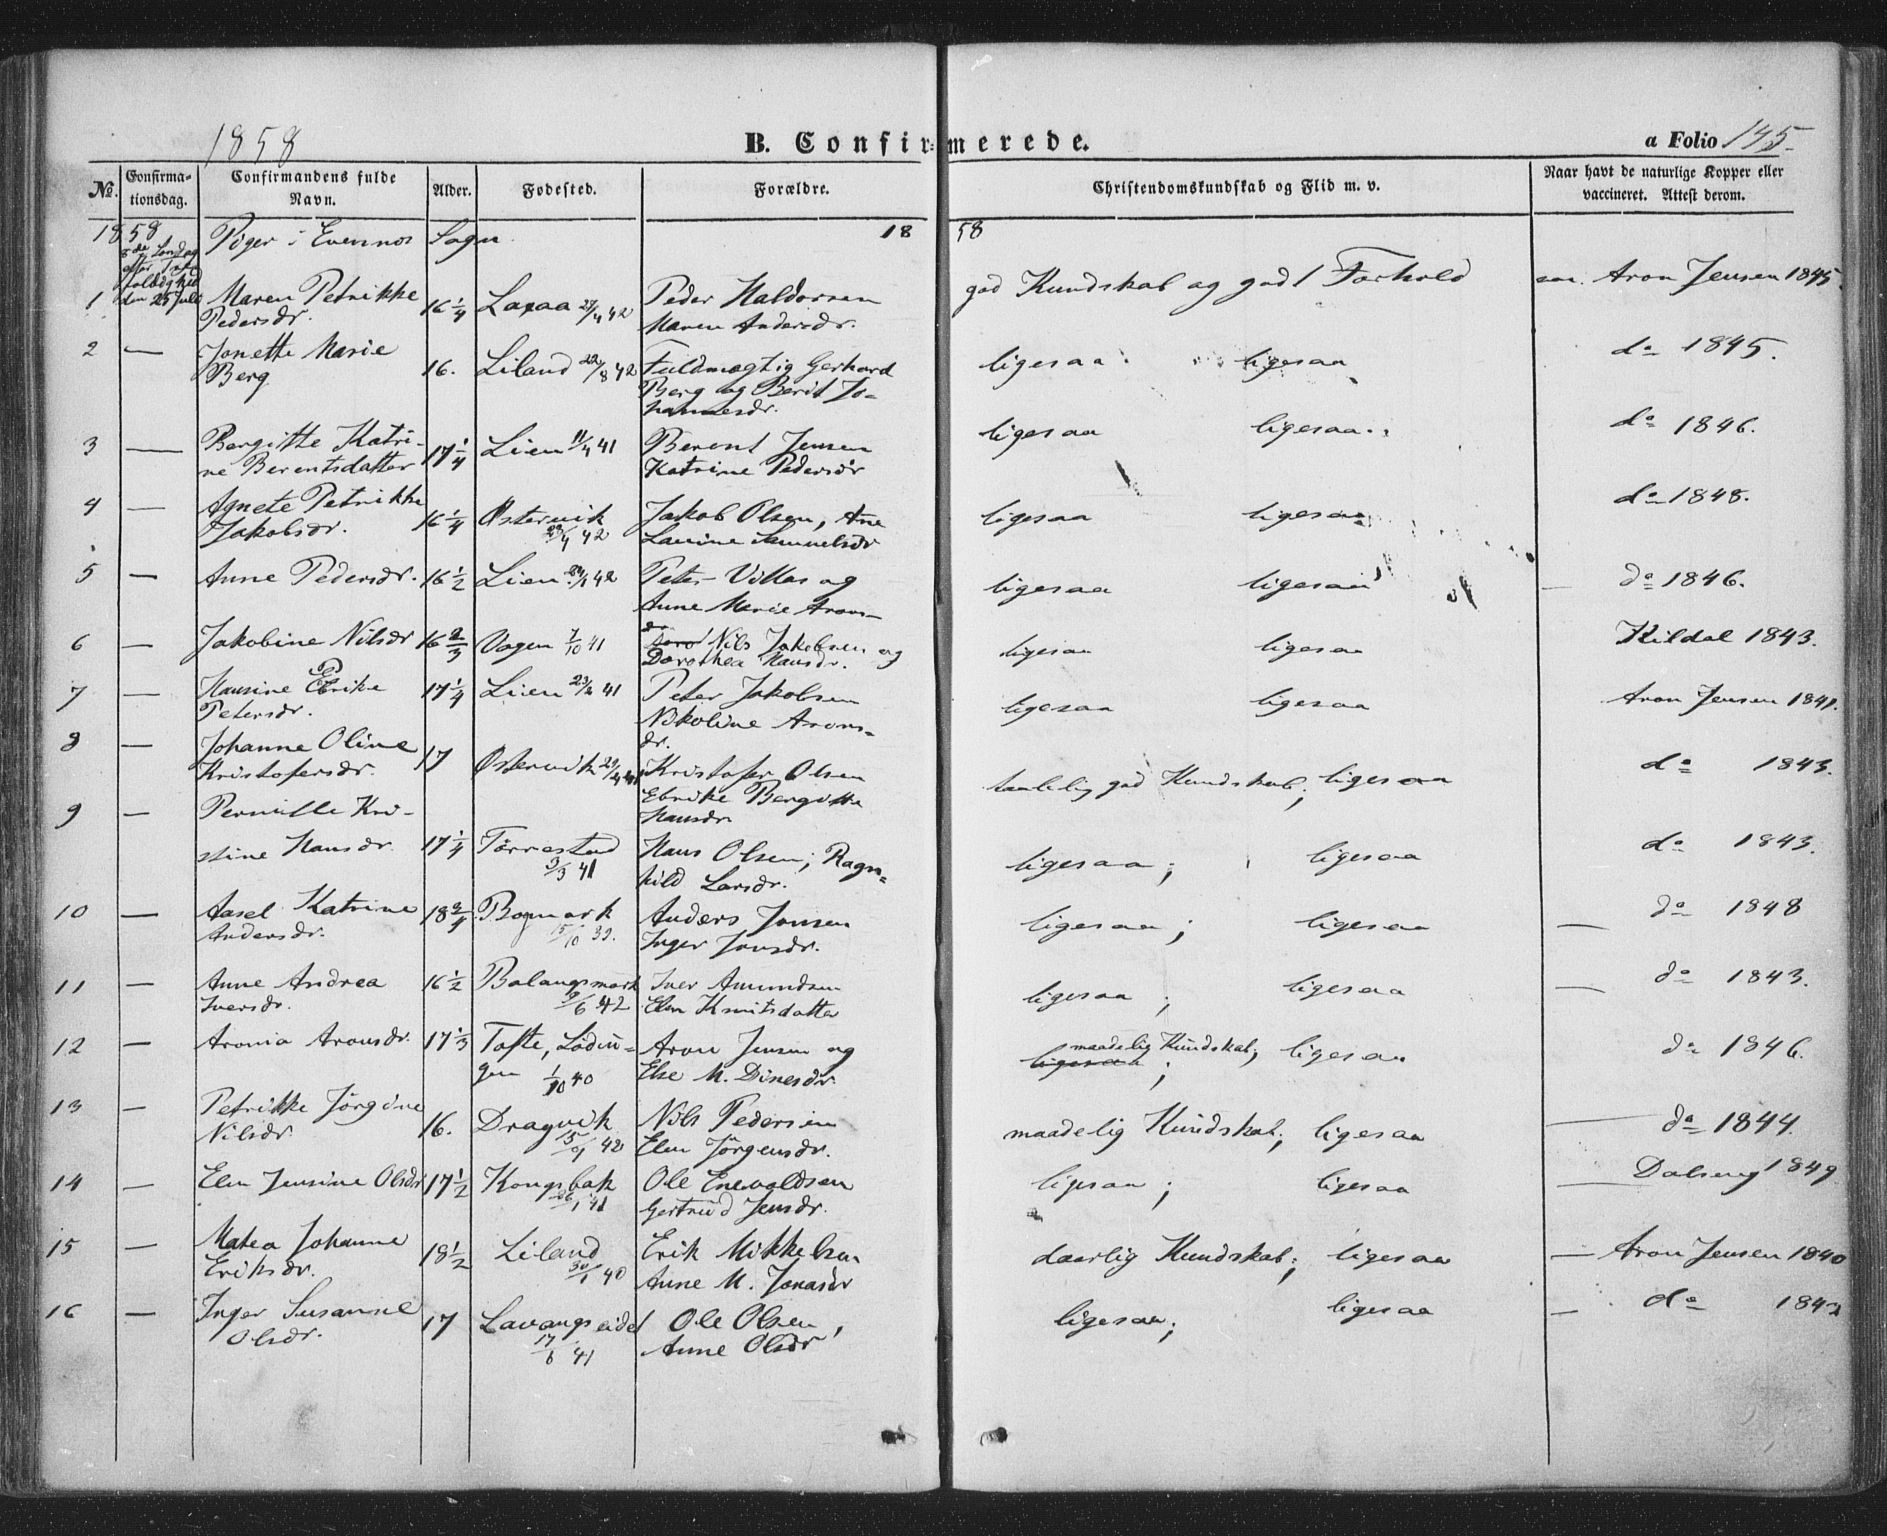 1858
B. Confirmerede.
a Folio 145
No.
Confirma-
tionsdag.
Confirmandens fulde
Navn.
Alder.
Fødested.
Forældre.
Christendomskundskab og Flid m. v.
Naar havt de naturlige Kopper eller
vaccineret. Attest derom.
1858 Piger i Evennes Sogn 18 58
8de Søndag
efter Tre-
foldighed
den 25 Juli
1 Maren Petrikke 16 1/4 Laxaa 29/4 42 Peder Haldorsen god Kundskab og god Forhold vac. Aron Jensen 1845.
Pedersdr. Maren Andersdr.
2 — Jonette Marie 16. Liland 22/8 42 Fuldmægtig Gerhard ligesaa ligesaa do 1845.
Berg Berg og Berit Jo-
hannesdr.
3 — Bergitte Katri- 17 1/4 Lien 11/4 41 Berent Jensen ligesaa ligesaa do 1846.
ne Berentsdatter Katrine Pedersdr
4 — Agnete Petrikke 16 1/4 Østervik Jakob Olsen, Ane ligesaa ligesaa do 1848.
Jakobsdr. 29/4 42 Lavine Samuelsdr
5 — Anne Pedersdr. 16 1/2 Lien 42 Peter Villas og ligesaa ligesaa do 1846.
Anne Marie Arons-
dr
6 — Jakobine Nilsdr 16 2/3 Vogen 7/10 41 Nils Jakobsen og ligesaa ligesaa Kildal 1843.
Dorothea Hansdr.
7 — Hansine Ebrike 17 1/4 Lien 23/4 41 Peter Jakobsen ligesaa ligesaa Aron Jensen 1841.
Petersdr. Nikoline Arons-
dr.
8 — Johanne Oline 17 Østervik 29/4 41 Kristofer Olsen taalelig god Kundskab; ligesaa do 1843.
Kristofersdr. Ebrike Bergitte
Hansdr
9 — Pernille Kri-
stine Hansdr. 17 1/4 Tørrestad Hans Olsen; Ragn- ligesaa; ligesaa do 1843.
3/3 41 hild Larsdr.
10 — Aasel Katrine 18 3/4 Bogmark Anders Jonsen ligesaa; ligesaa — do 1848
Andersdr. 15/10 39. Inger Jonsdr.
11 — Anne Andrea 16 1/2 Balangsmark Iver Amundsen ligesaa; ligesaa — do 1843.
Iversdr. 9/6 42 Elen Knutsdatter
12 — Aronia Aronsdr. 17 1/3 Tofte, Lødin- Aron Jensen og maadelig Kundskab; ligesaa do 1846.
gen 1/10 40 Else M. Dinesdr. ligesaa;
13 — Petrikke Jørgine 16. Dragvik Nils Pedersen maadelig Kundskab; ligesaa — do 1844.
Nilsdr. 15/4 42 Elen Jørgensdr.
14 — Elen Jensine Olsdr 17 1/2 Kongsbak Ole Enevoldsen ligesaa; ligesaa — Dalseng 1849
26/1 41 Gertrud Jensdr.
15 — Matea Johanne 18 1/2 Liland Erik Mikkelsen daarlig Kundskab; ligesaa — Aron Jensen 1840
Eriksdr. 30/1 40 Anne M. Jonasdr
16 — Inger Susanne 17 Lavangseidet Ole Olsen, ligesaa; ligesaa — do 1842
Olsdr. 17/6 41 Anne Olsdr